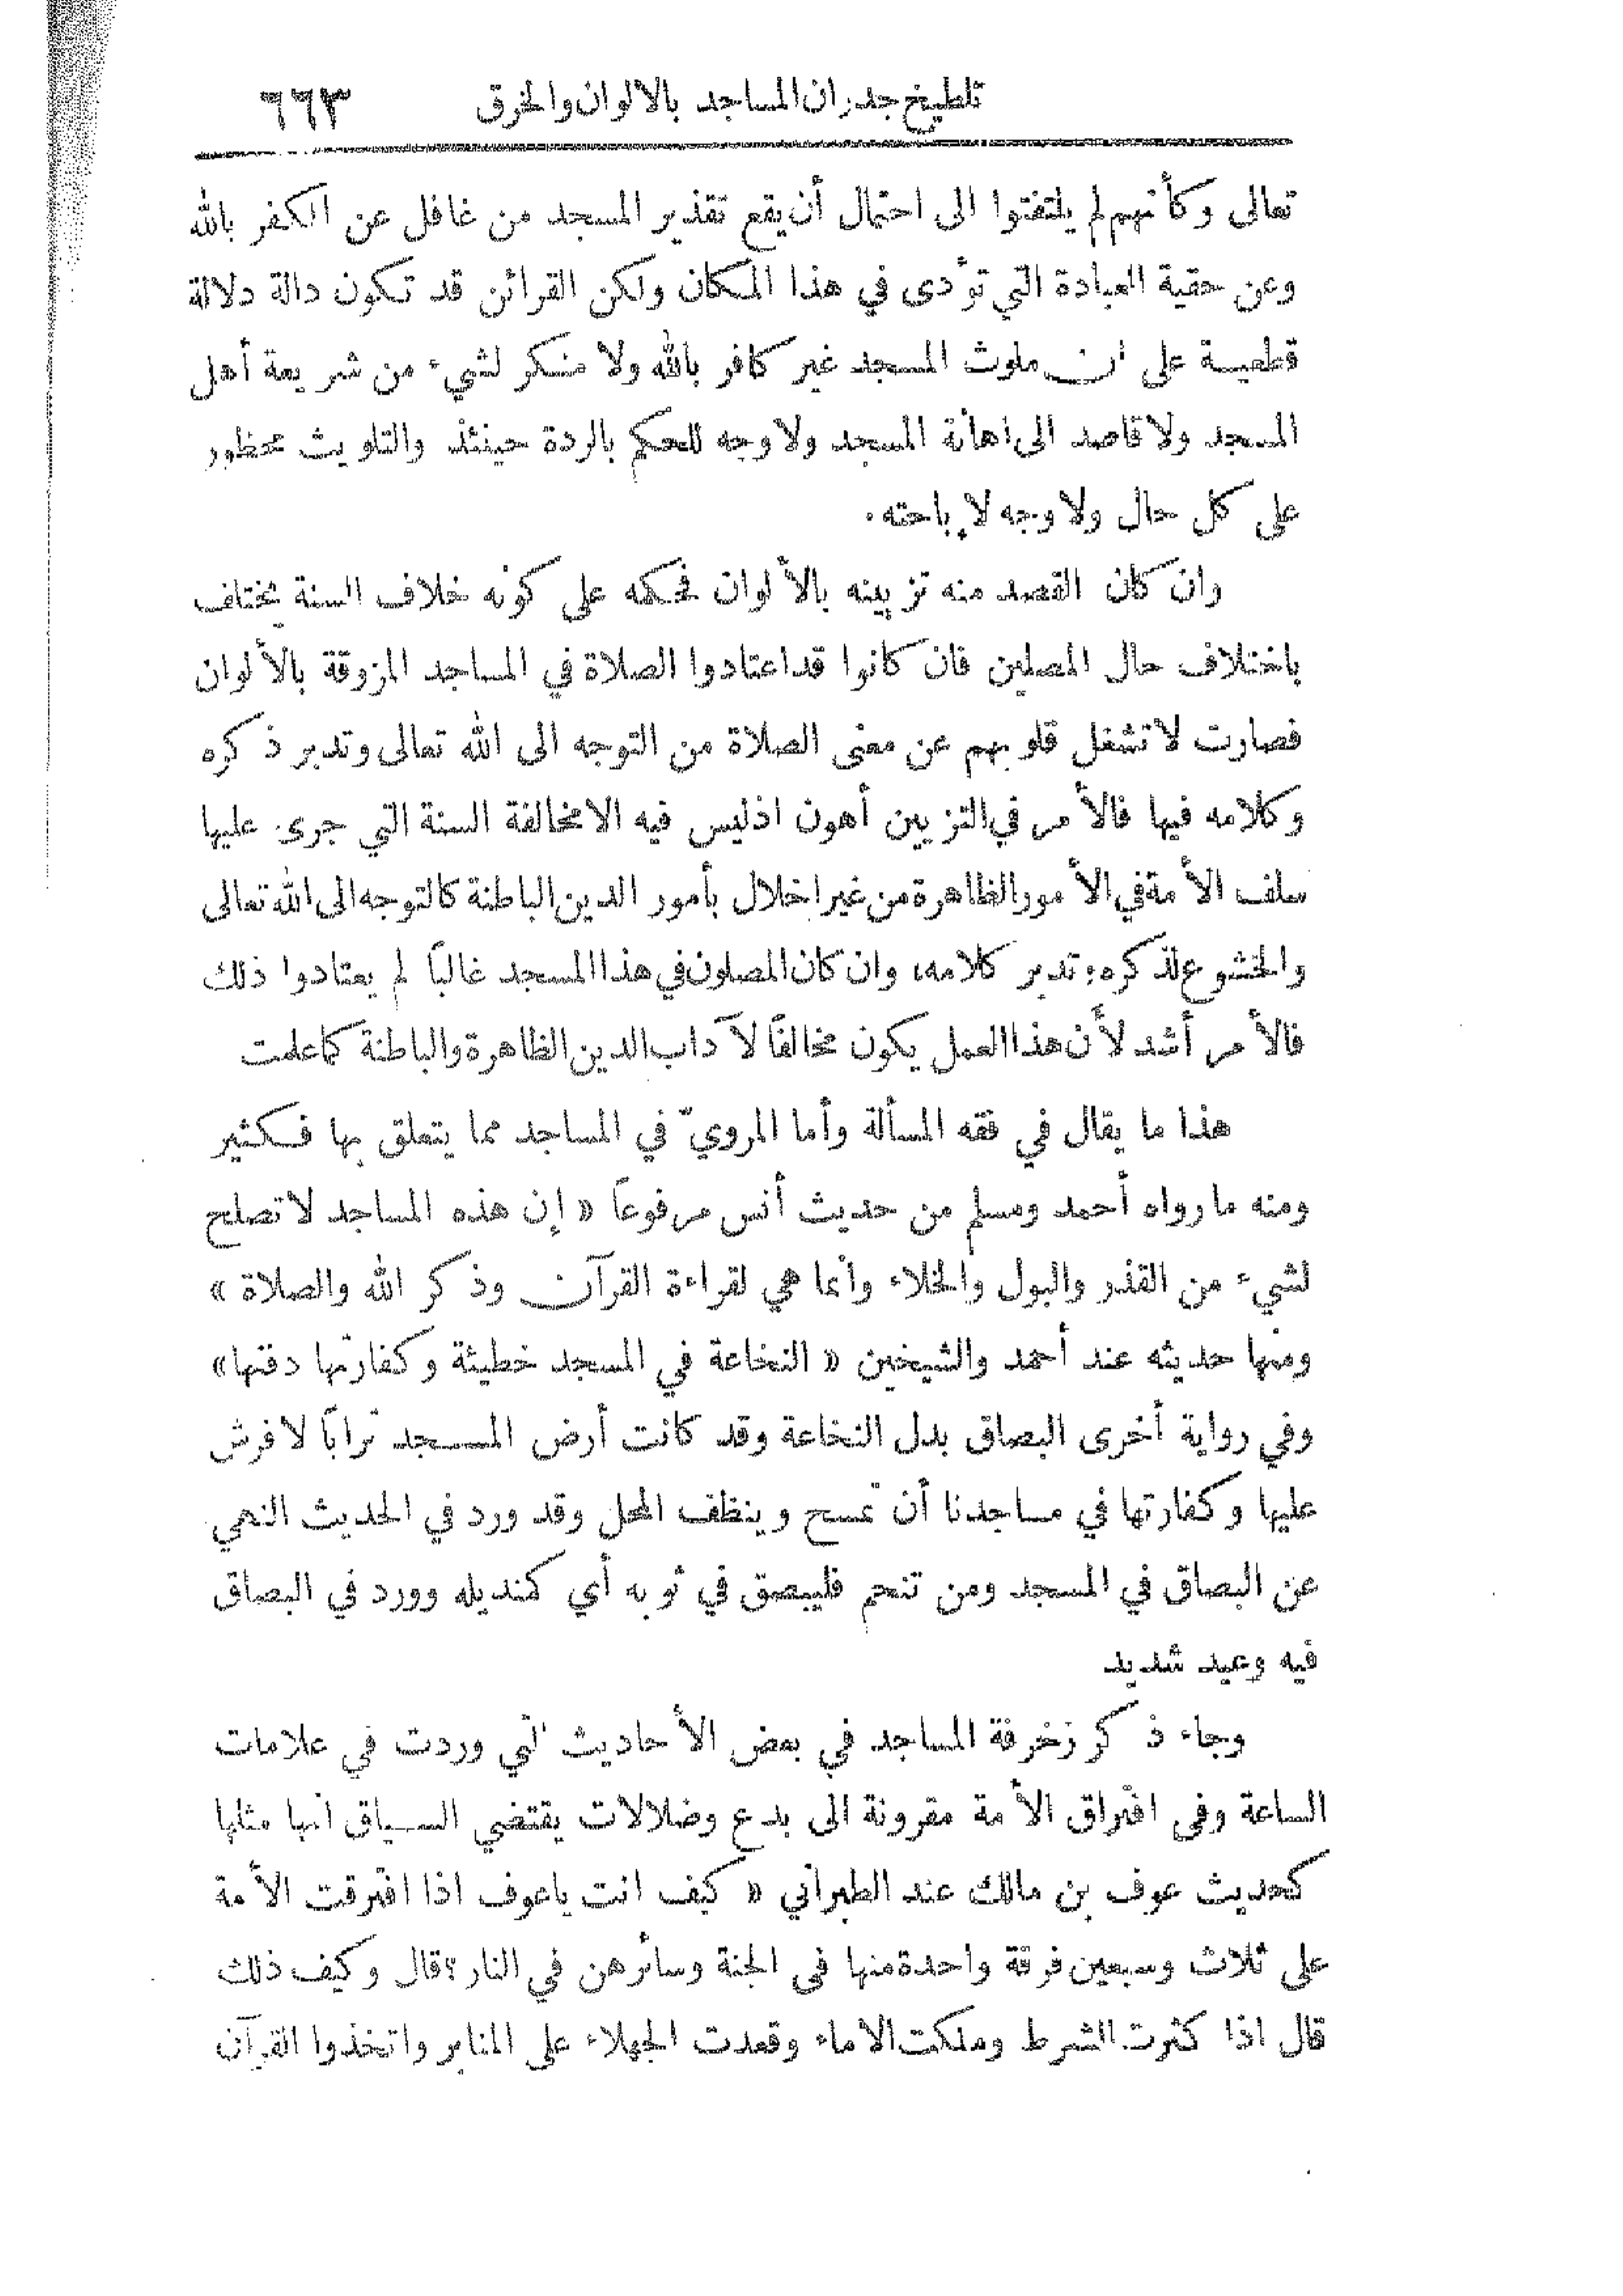 تلطيخ جدران المساجد بالالوان والخرق ٦٦٣
تعالى وكأنهم لم يلتفتوا الى احتمال أن يقع تقذير المسجد من غافل عن الكفر بالله
وعن حقية العبادة التي تؤدى في هذا المكان ولكن القرائن قد تكون دالة دلالة
قطعية على ان ملوث المسجد غير كافر بالله ولا منكر لشيء من شريعة أهل
المسجد ولا قاصد الى اهانة المسجد ولا وجه للحكم بالردة حينئذ والتلويث محظور
على كل حال ولا وجه لإباحته.
وان كان القصد منه تزيينه بالألوان فحكمه على كونه خلاف السنة يختلف
باختلاف حال المصلين فان كانوا قد اعتادوا الصلاة في المساجد المزوقة بالألوان
فصارت لا تشغل قلوبهم عن معنى الصلاة من التوجه الى الله تعالى وتدبر ذكره
وكلامه فيها فالأمر في التزيين أهون اذ ليس فيه الا مخالفة السنة التي جرى عليها
سلف الأمة في الأمور الظاهرة من غير اخلال بأمور الدين الباطنة كالتوجه الى الله تعالى
والخشوع لذكره وتدبر كلامه، وان كان المصلون في هذا المسجد غالبًا لم يعتادوا ذلك
فالأمر أشد لأن هذا العمل يكون مخالفًا لآداب الدين الظاهرة والباطنة كما علمت
هذا ما يقال في فقه المسألة وأما المرويّ في المساجد مما يتعلق بها فكثير
ومنه ما رواه أحمد ومسلم من حديث أنس مرفوعًا « إن هذه المساجد لا تصلح
لشيء من القذر والبول والخلاء وأنما هي لقراءة القرآن وذكر الله والصلاة »
ومنها حديثه عند أحمد والشيخين « النخاعة في المسجد خطيئة وكفارتها دفنها»
وفي رواية أخرى البصاق بدل النخاعة وقد كانت أرض المسجد ترابًا لا فرش
عليها وكفارتها في مساجدنا أن تمسح وينظف المحل وقد ورد في الحديث النهي
عن البصاق في المسجد ومن تنخم فليبصق في ثوبه أي كمنديله وورد في البصاق
فيه وعيد شديد
وجاء ذكر زخرفة المساجد في بعض الأحاديث التي وردت في علامات
الساعة وفي افتراق الأمة مقرونة الى بدع وضلالات يقتضي السياق انها مثلها
كحديث عوف بن مالك عند الطبراني « كيف انت ياعوف اذا افترقت الأمة
على ثلاث وسبعين فرقة واحدة منها في الجنة وسائرهن في النار؟ قال وكيف ذلك
قال اذا كثرت الشرط وملكت الاماء وقعدت الجهلاء على المنابر واتخذوا القرآن